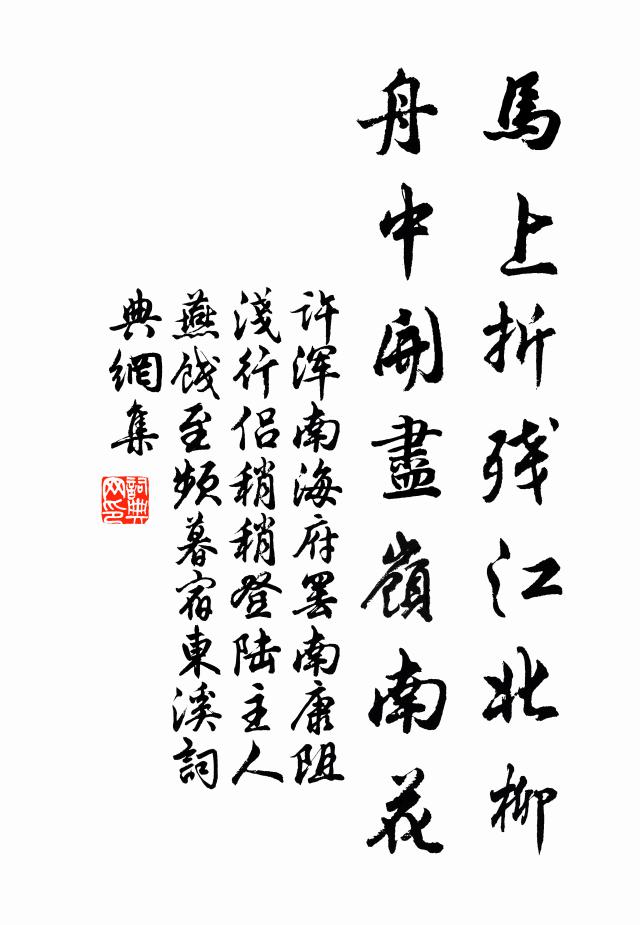 馬上折残江北柳
舟中開盡嶺南花
許渾南海府罷南康阻
淺行侶稍稍登陸主人
燕餞至頻暮宿東溪詞
典網集
詞典
网印